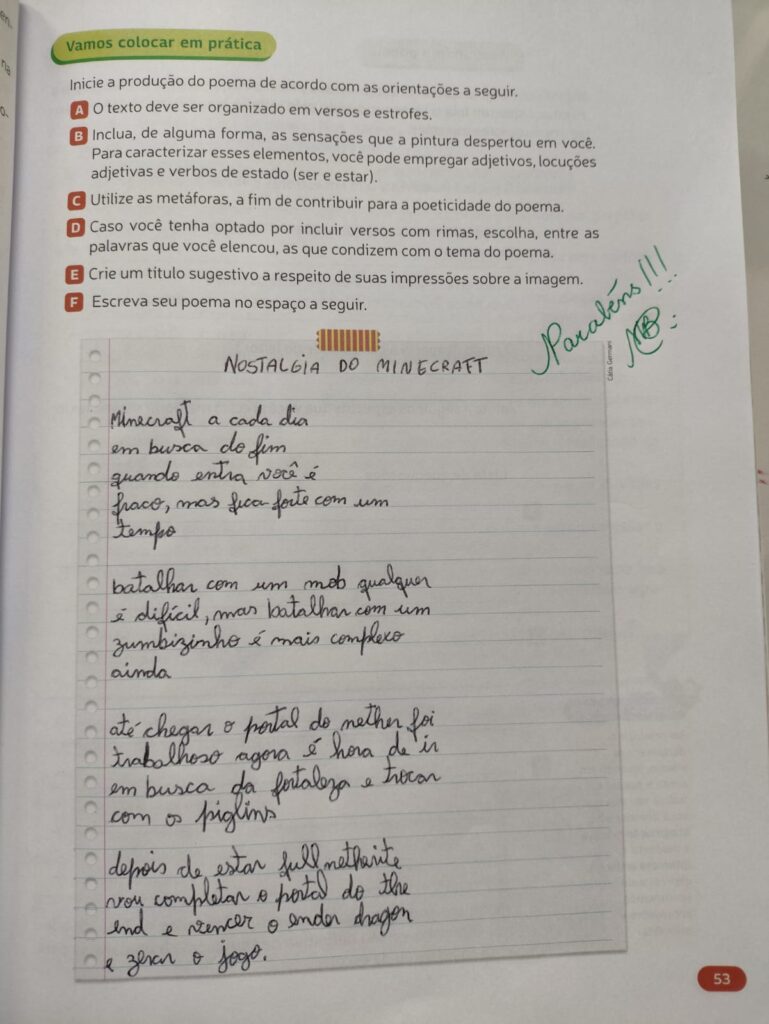 Vamos colocar em prática
Inicie a produção do poema de acordo com as orientações a seguir.
A O texto deve ser organizado em versos e estrofes.
B Inclua, de alguma forma, as sensações que a pintura despertou em você.
Para caracterizar esses elementos, você pode empregar adjetivos, locuções
adjetivas e verbos de estado (ser e estar).
C Utilize as metáforas, a fim de contribuir para a poeticidade do poema.
D Caso você tenha optado por incluir versos com rimas, escolha, entre as
palavras que você elencou, as que condizem com o tema do poema.
E Crie um título sugestivo a respeito de suas impressões sobre a imagem.
F Escreva seu poema no espaço a seguir.
Parabéns!!!
Cátia Germani
NOSTALGIA DO MINECRAFT
Minecraft a cada dia
em busca do fim
quando entra você é
fraco, mas fica forte com um
tempo
batalhar com um mob qualquer
é difícil, mas batalhar com um
zumbizinho é mais complexo
ainda
até chegar o portal do nether foi
trabalhoso agora é hora de ir
em busca da fortaleza e trocar
com os piglins
depois de estar full netherite
vou completar o portal do the
end e vencer o ender dragon
e zerar o jogo.
53